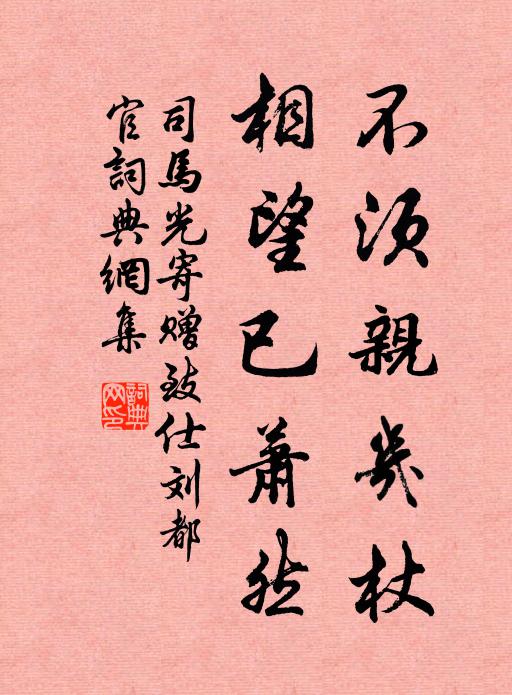 不须親几杖
相望已蕭然
司馬光寄赠致仕刘都
官詞典網集
詞典网印